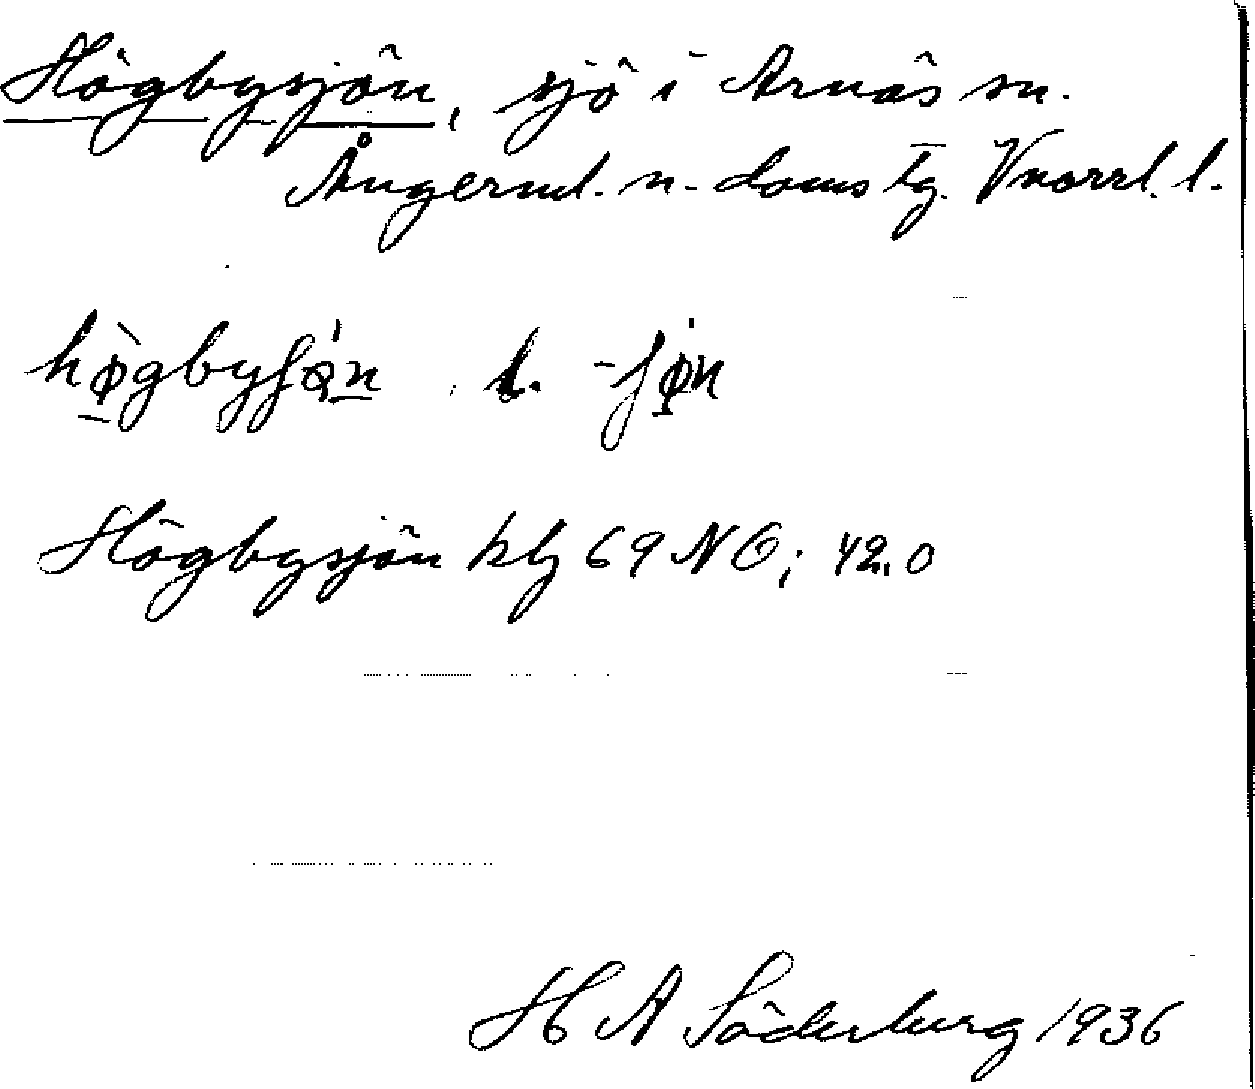 Högbysjön, sjö i Arnäs sn.
Ångerml. n. doms tg. Vnorrl. l.
hø̀gbyʃɷ́n l. -ʃø̇n
Högbysjön kbl 69 NO; 42.0
H A Söderberg 1936